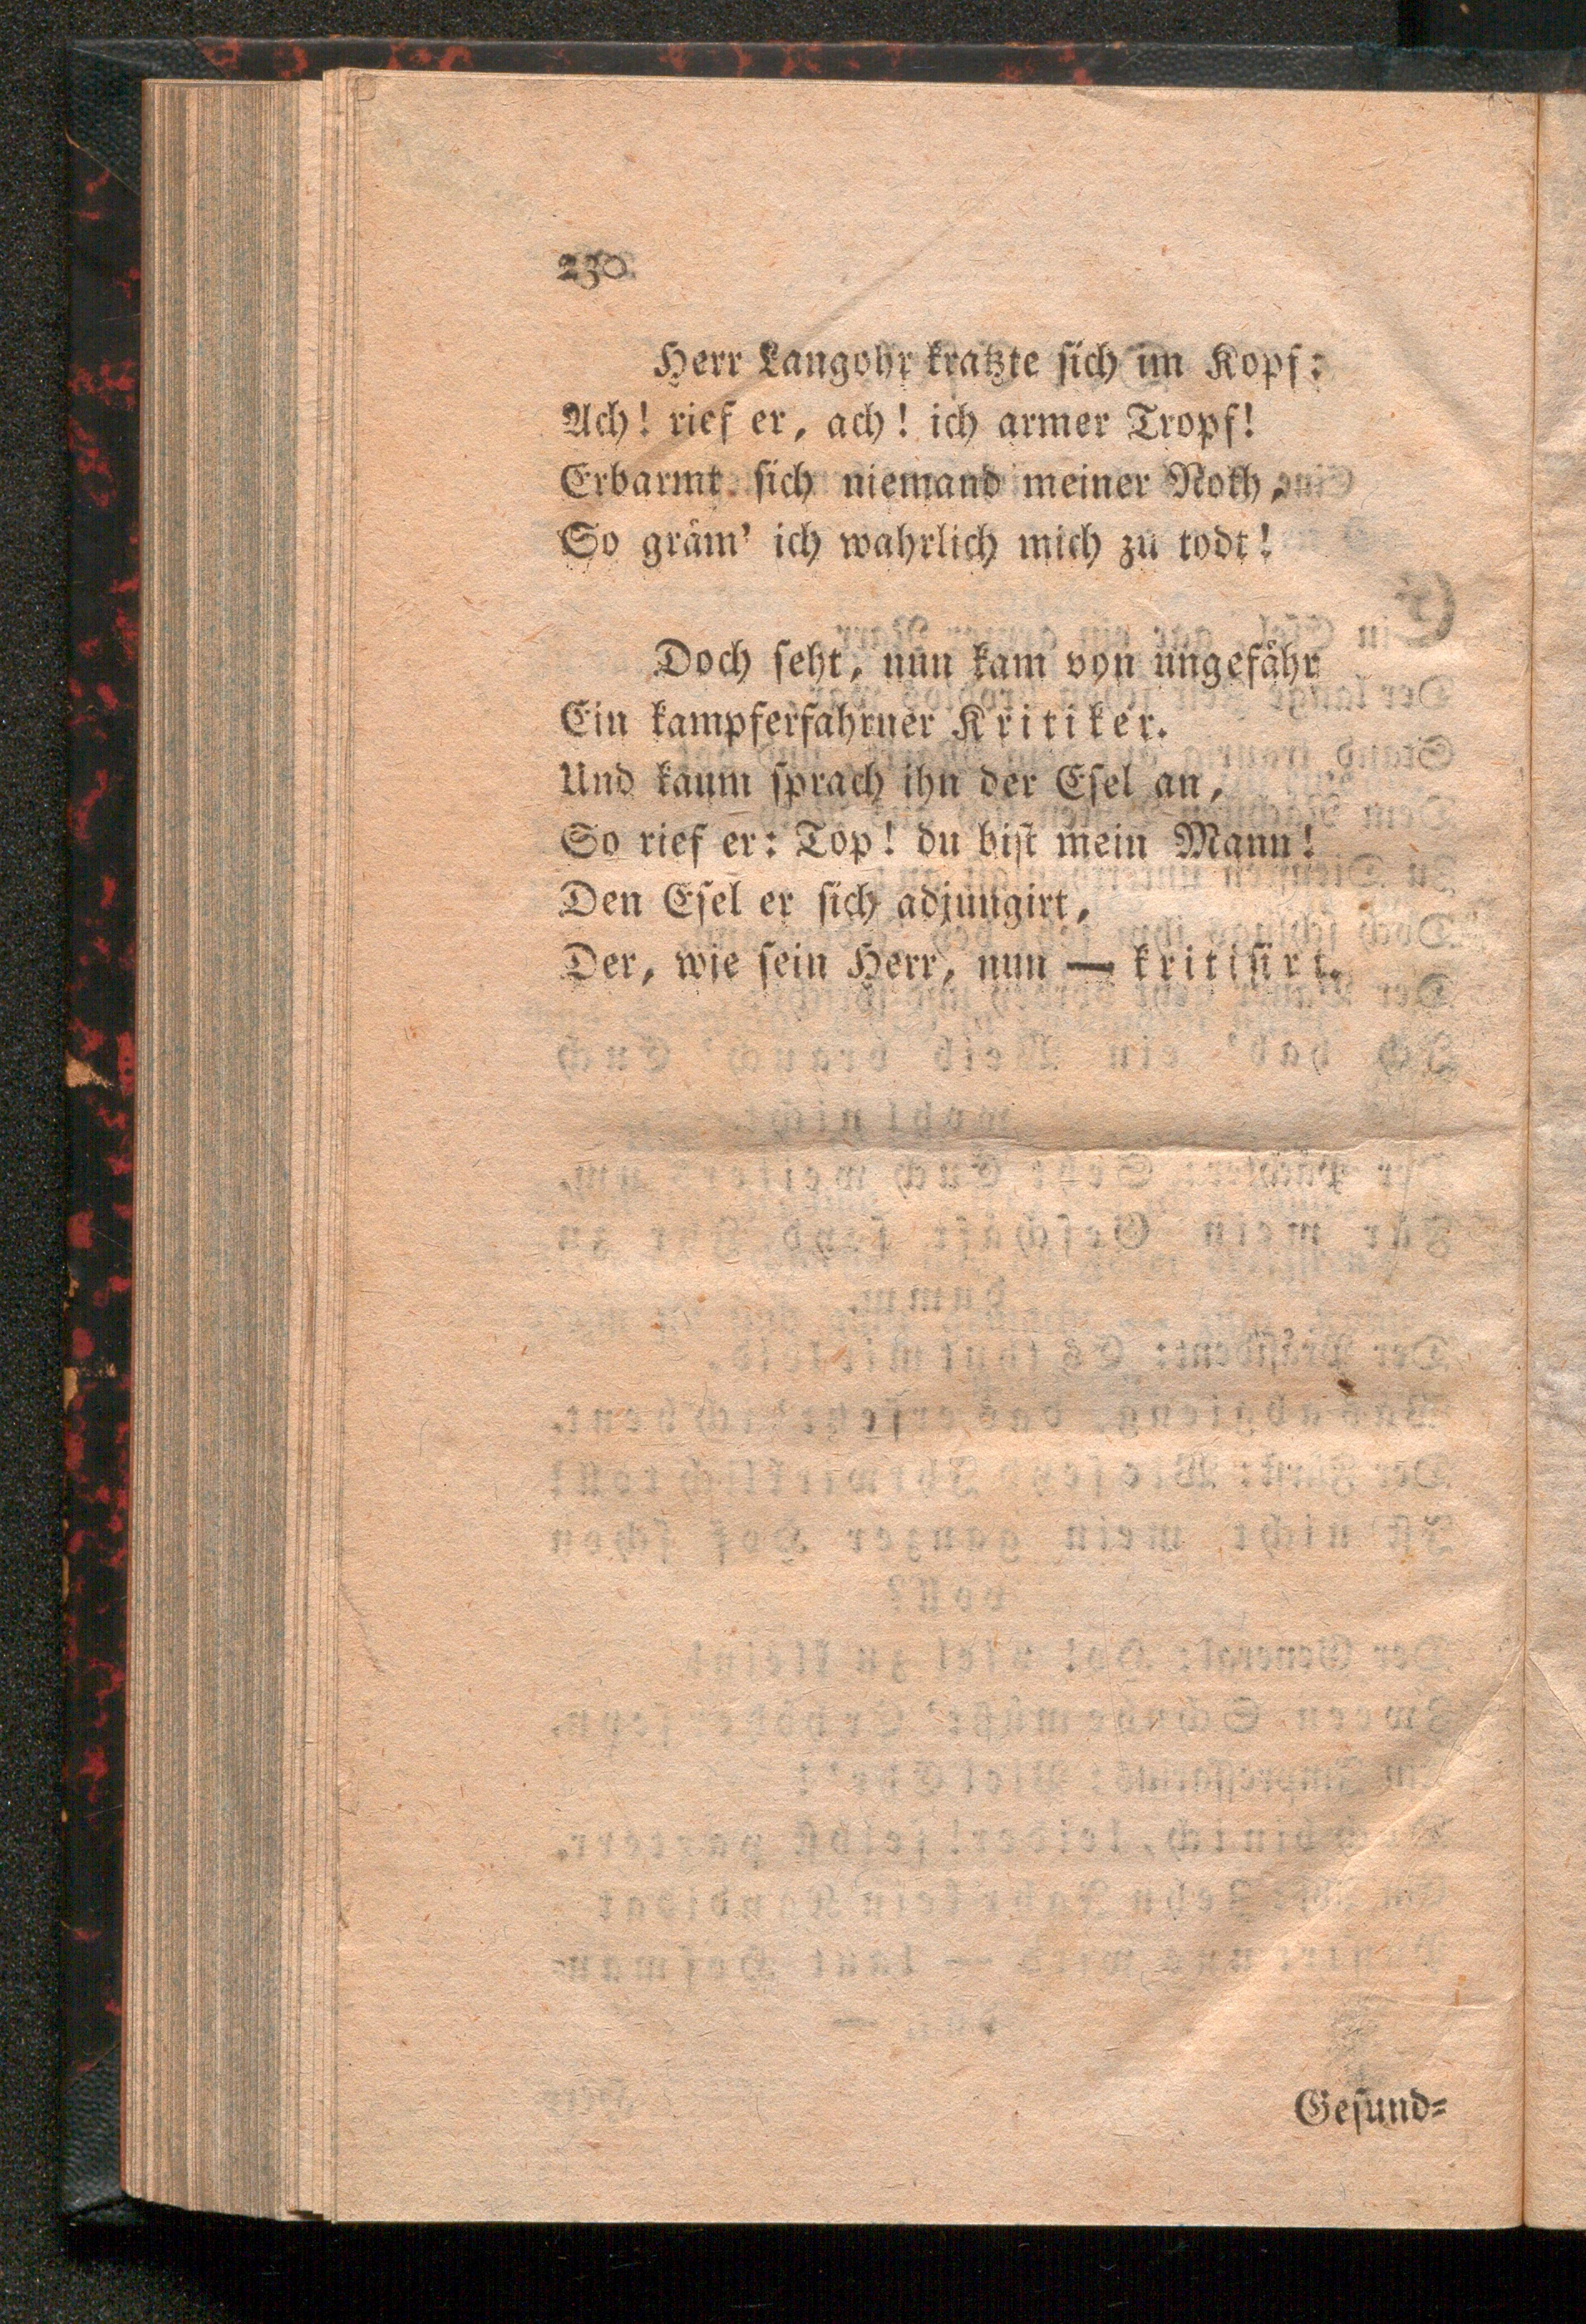 230
Herr Langohr kratzte sich im Kopf:
Ach! rief er, ach! ich armer Tropf!
Erbarmt sich niemand meiner Noth,
So gräm' ich wahrlich mich zu todt!
Doch seht, nun kam von ungefähr
Ein kampferfahrner Kritiker.
Und kaum sprach ihn der Esel an,
So rief er: Top! du bist mein Mann!
Den Esel er sich adjungirt,
Der, wie sein Herr, nun — kritisirt.
Gesund-